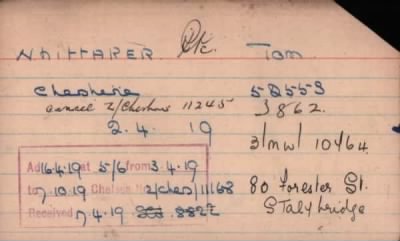 WHITTAKER Pte. Tom
Cheshire 52553
2/Cheshire 11245 3862.
2.4. 19
3/MW/10464.
Ad 16.4.19 at 5/6 from 3.4.19
to 7.10.19 Chelsea No 2/Ches/11168 80 Forester St.
Received 7.4.19 8822 Stalybridge